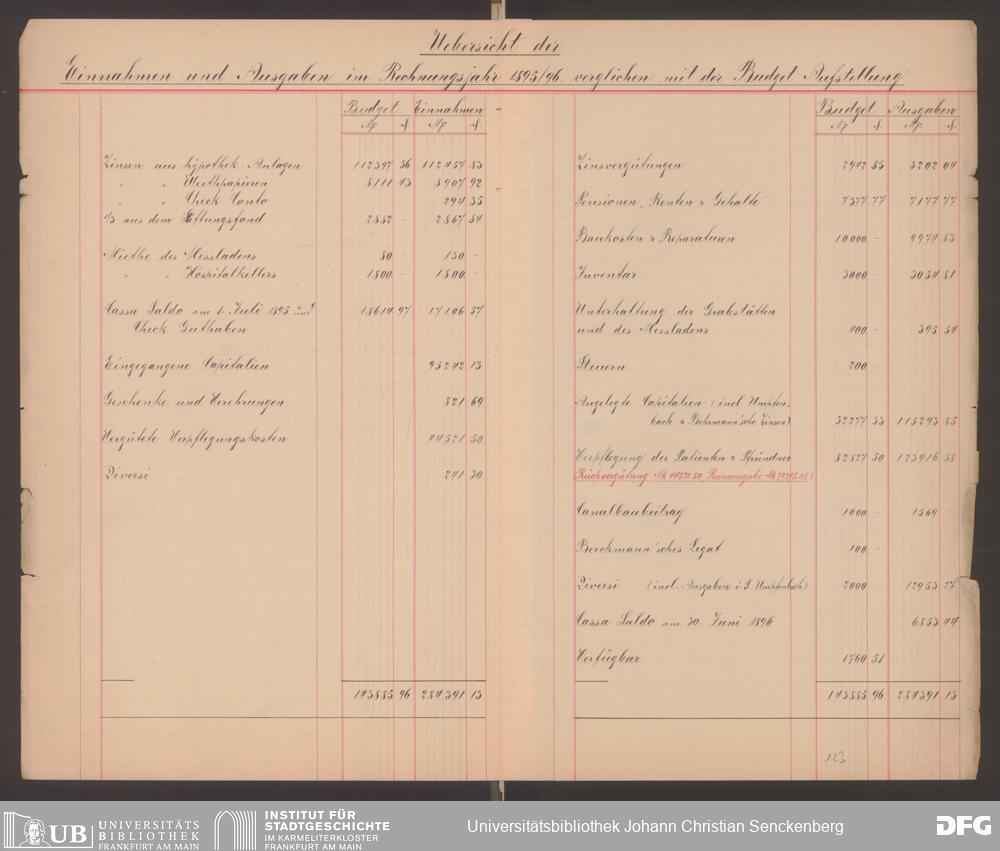 Uebersicht der
Einnahmen und Ausgaben im Rechnungsjahr 1895/96 verglichen mit der Budget Aufstellung
Budget Einnahmen
Mk. ₰. Mk. ₰.
Zinsen aus hypothek. Anlagen 112397 56 112457 83
" " Werthpapieren 8111 43 8907 92
" " Check Conto 294 35
1/3 aus dem Stiftungsfond 2882 - 2867 84
Miethe des Messladens 80 - 130 -
" " Hospitalkellers 1800 - 1800 -
Cassa Saldo am 1. Juli 1895 und 18614 97 17106 57
Check Guthaben
Eingegangene Capitalien 95242 13
Geschenke und Verehrungen 821 69
Vergütete Verpflegungskosten 44521 50
Diversi 241 30
143885 96 284391 13
Budget Ausgaben
Mk. ₰. Mk. ₰.
Zinsvergütungen 2942 85 3202 04
Pensionen, Renten & Gehalte 7377 77 7177 77
Baukosten & Reparaturen 10000 - 9974 83
Inventar 3000 - 3054 81
Unterhaltung der Grabstätten
und des Messladens 400 - 395 54
Steuern 200 -
Angelegte Capitalien (incl. Umpfen-
bach & Behrmann'sche Zinsen) 32277 33 115293 85
Verpflegung der Patienten & Pfründner 82827 50 123916 58
Rückvergütung Mk 44521.50, Reinausgabe Mk 79395.08)
Canalbaubeitrag 1000 - 1569 -
Berckmann'sches Legat 100 -
Diversi (incl. Ausgaben i. S. Umpfenbach) 2000 12953 27
Cassa Saldo am 30. Juni 1896 6853 44
Verfügbar 1760 51
143885 96 284391 13
123
UB UNIVERSITÄTS
BIBLIOTHEK
FRANKFURT AM MAIN
INSTITUT FÜR
STADTGESCHICHTE
IM KARMELITERKLOSTER
FRANKFURT AM MAIN
Universitätsbibliothek Johann Christian Senckenberg
DFG